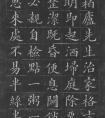 柏廬先生治家格言
明即起洒掃庭除要
整潔既昏便息關鎖
必親自檢點一粥一
思來處不易半絲半